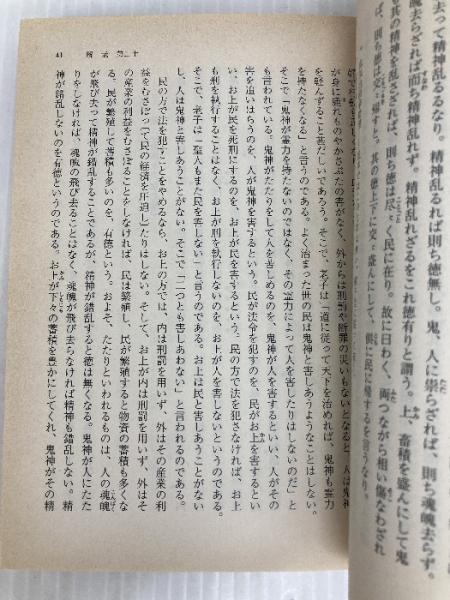 去って精神乱るるなり。精神乱るれば則ち徳無し。鬼、人に祟らざれば、則ち魂魄去らず。
魄去らざれば而ち精神乱れず。精神乱れざるをこれ徳有りと謂う。上、蓄積を盛んにして鬼
其の精神を乱さざれば、則ち徳は尽く民に在り。故に曰わく、両つながら相い傷なわざれ
ば、則ち徳は交〻帰すと。其の徳上下に交〻盛んにして、倶に民に帰するを言うなり。
41 解老 第二十
が身に疵れものやかさぶたの害がなく、外からは刑罰や断罪の災いもないとなると、人は鬼神
を軽んずること甚だしいであろう。そこで、老子は「道に従って天下を治めれば、鬼神も霊力
を持たなくなる」と言うのである。よく治まった世の民は鬼神と害しあうようなことはしない。
そこで「鬼神が霊力を持たないのではなく、その霊力によって人を害したりはしないのだ」と
も言われている。鬼神がたたりをして人を苦しめるのを、鬼神が人を害するといい、人がその
害を追いはらうのを、人が鬼神を害するという。民が法令を犯すのを、民がお上を害するとい
い、お上が民を死刑にするのを、お上が民を害するという。民の方で法を犯さなければ、お上
も刑を執行することはなく、お上が刑を執行しないのを、お上が人を害さないという。そこ
で、老子は「聖人もまた民を害しない」と言うのである。お上は民と害しあうことがない
し、人は鬼神と害しあうことがない。そこで「二つとも害しあわない」と言われるのである。
民の方で法を犯すことをやめるなら、お上の方では、内は刑罰を用いず、外はその産業の利
益をむさぼって民の経済を圧迫したりはしない。そして、お上が内は刑罰を用いず、外はそ
の産業の利益をむさぼることをしなければ、民は繁殖し、民が繁殖すると物資の蓄積も多くな
る。民が繁殖して蓄積も多いのを、有徳という。およそ、たたりといわれるものは、人の魂魄
が飛び去って精神が錯乱することであるが、精神が錯乱すると徳は無くなる。鬼神が人にたた
りをしなければ、魂魄の飛び去ることはなく、魂魄が飛び去らなければ精神も錯乱しない。精
神が錯乱しないのを有徳というのである。お上が下々の蓄積を豊かにしてくれ、鬼神がその精